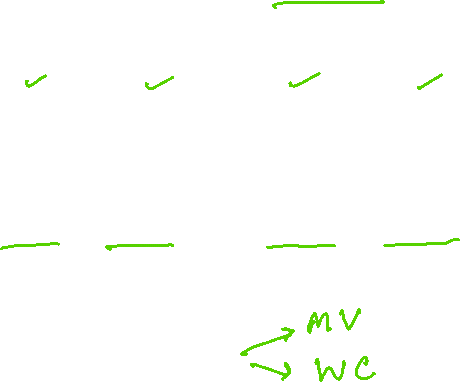 MV
WC